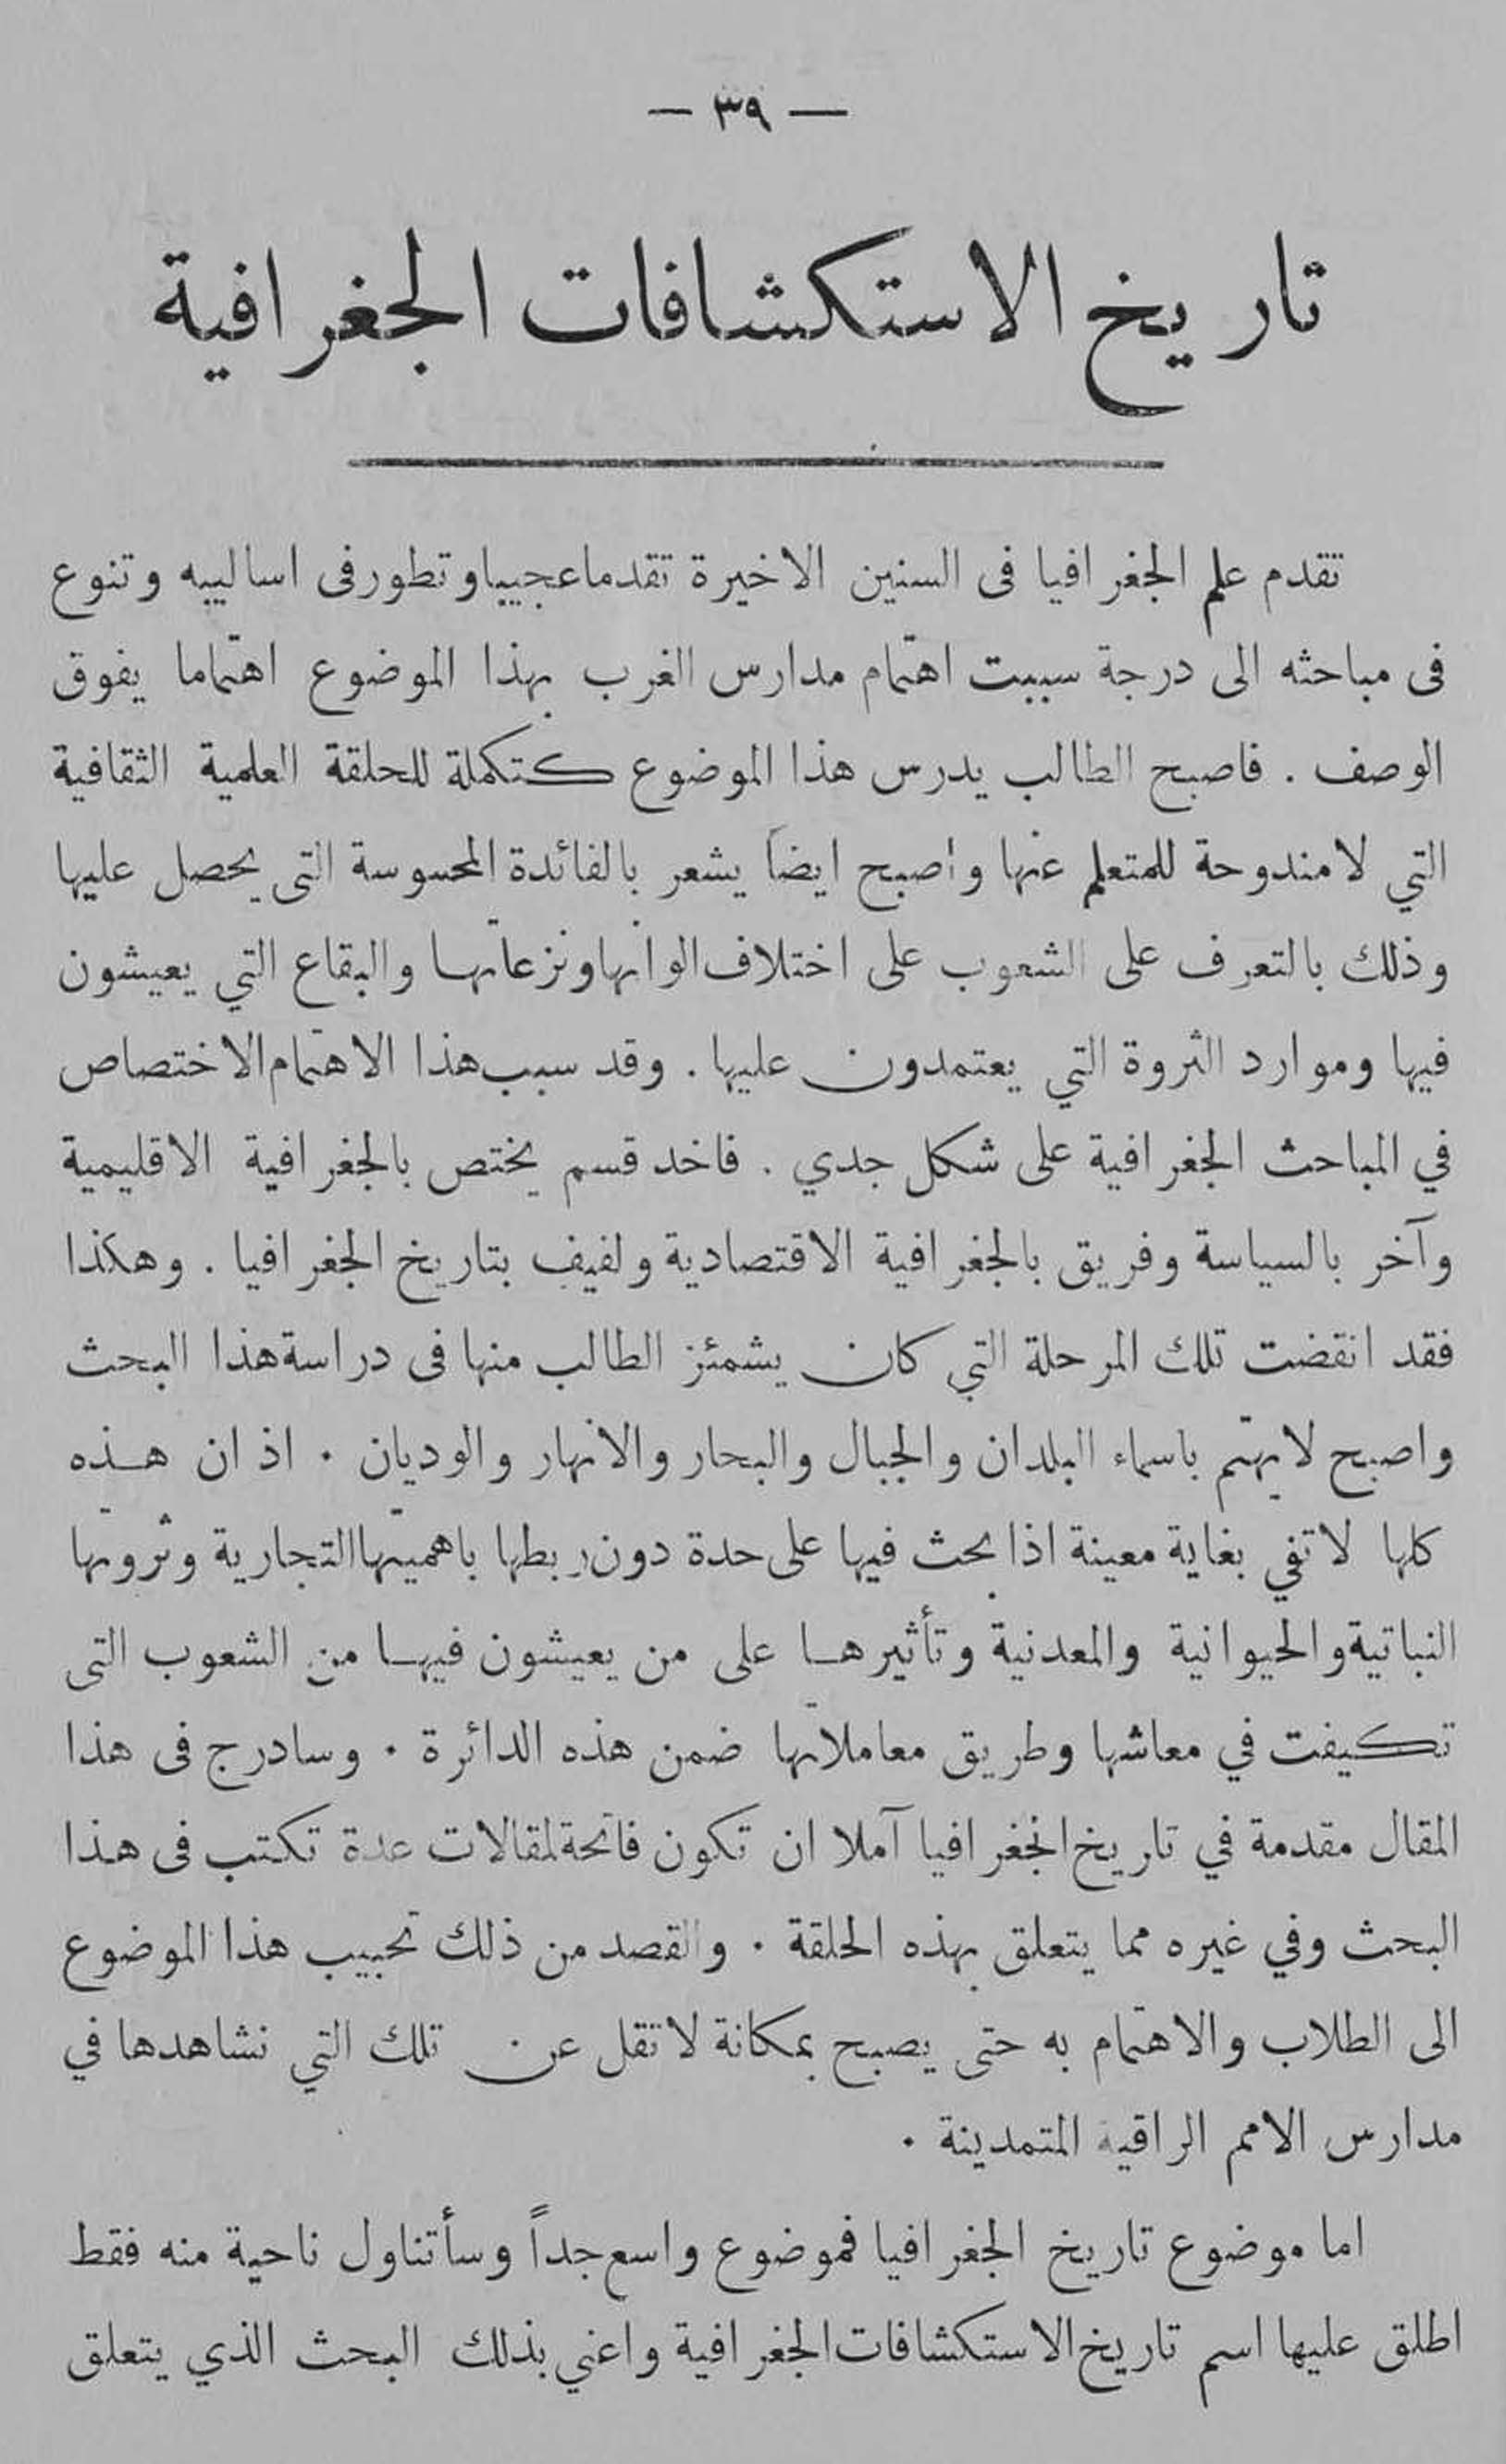 — ٣٩ —
تاريخ الاستكشافات الجغرافية
تقدم علم الجغرافيا فى السنين الاخيرة تقدما عجيبا وتطور فى اساليبه وتنوع
فى مباحثه الى درجة سببت اهتمام مدارس الغرب بهذا الموضوع اهتماما يفوق
الوصف . فاصبح الطالب يدرس هذا الموضوع كتكملة للحلقة العلمية الثقافية
التي لا مندوحة للمتعلم عنها واصبح ايضاً يشعر بالفائدة المحسوسة التى يحصل عليها
وذلك بالتعرف على الشعوب على اختلاف الوانها ونزعاتها والبقاع التي يعيشون
فيها وموارد الثروة التي يعتمدون عليها . وقد سبب هذا الاهتمام الاختصاص
في المباحث الجغرافية على شكل جدي . فاخد قسم يختص بالجغرافية الاقليمية
وآخر بالسياسة وفريق بالجغرافية الاقتصادية ولفيف بتاريخ الجغرافيا . وهكذا
فقد انقضت تلك المرحلة التي كان يشمئز الطالب منها فى دراسة هذا البحث
واصبح لا يهتم باسماء البلدان والجبال والبحار والانهار والوديان . اذ ان هذه
كلها لا تفي بغاية معينة اذا بحث فيها على حدة دون ربطها باهميتها التجارية وثروتها
النباتية والحيوانية والمعدنية وتأثيرها على من يعيشون فيها من الشعوب التى
تكيفت في معاشها وطريق معاملاتها ضمن هذه الدائرة . وسادرج فى هذا
المقال مقدمة في تاريخ الجغرافيا آملا ان تكون فاتحة لمقالات عدة تكتب فى هذا
البحث وفي غيره مما يتعلق بهذه الحلقة . والقصد من ذلك تحبيب هذا الموضوع
الى الطلاب والاهتمام به حتى يصبح بمكانة لا تقل عن تلك التي نشاهدها في
مدارس الامم الراقية المتمدينة .
اما موضوع تاريخ الجغرافيا فموضوع واسع جداً وسأتناول ناحية منه فقط
اطلق عليها اسم تاريخ الاستكشافات الجغرافية واعني بذلك البحث الذي يتعلق